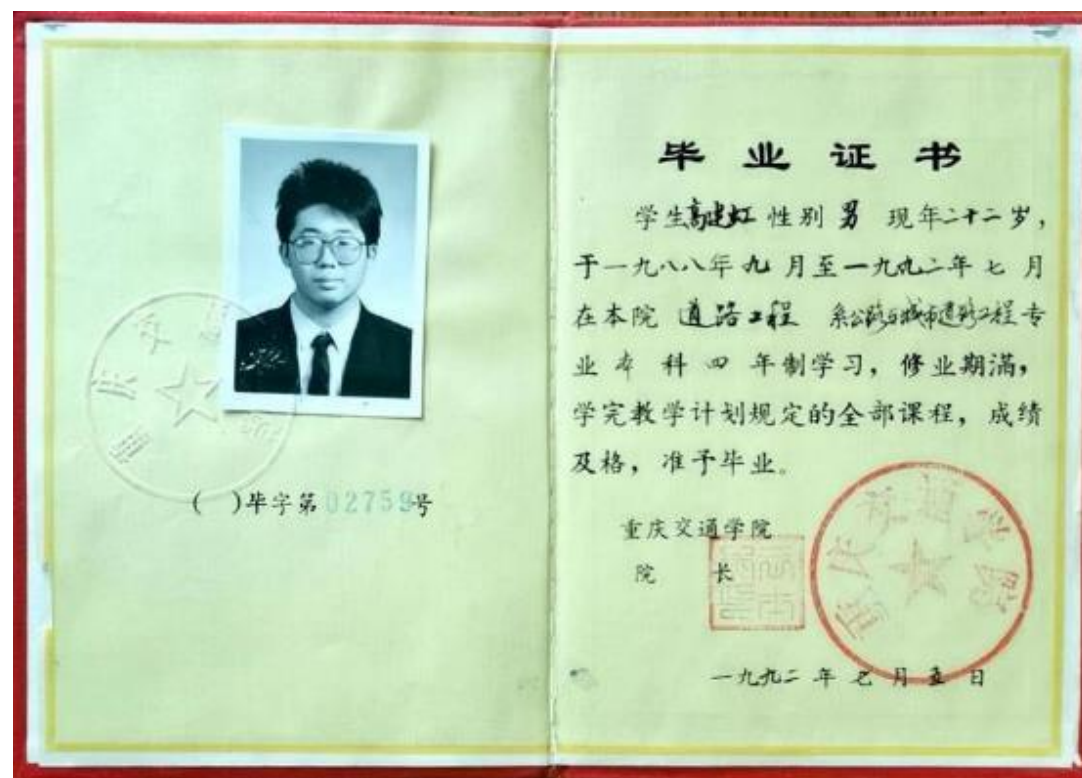 ()毕字第02759号
毕业证书
学生高建虹性别 男 现年二十二岁,
于一九八八年九月至一九九二年七月
在本院 道路工程 系公路与城市道路工程专
业本科四年制学习,修业期满,
学完教学计划规定的全部课程,成绩
及格,准予毕业。
重庆交通学院
院 长
一九九二年七月五日
重庆交通学院